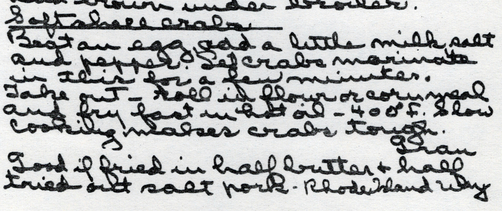 brown under broiler.
Softshell crabs
Beat an egg, add a little milk, salt
and pepper. Let crabs marinate
in this for a few minutes.
Take out - roll in flour or corn meal
and fry fast in hot oil - 400°F. Slow
cooking makes crabs tough.
Fran
Good if fried in half butter & half
tried out salt pork - Rhode Island Way